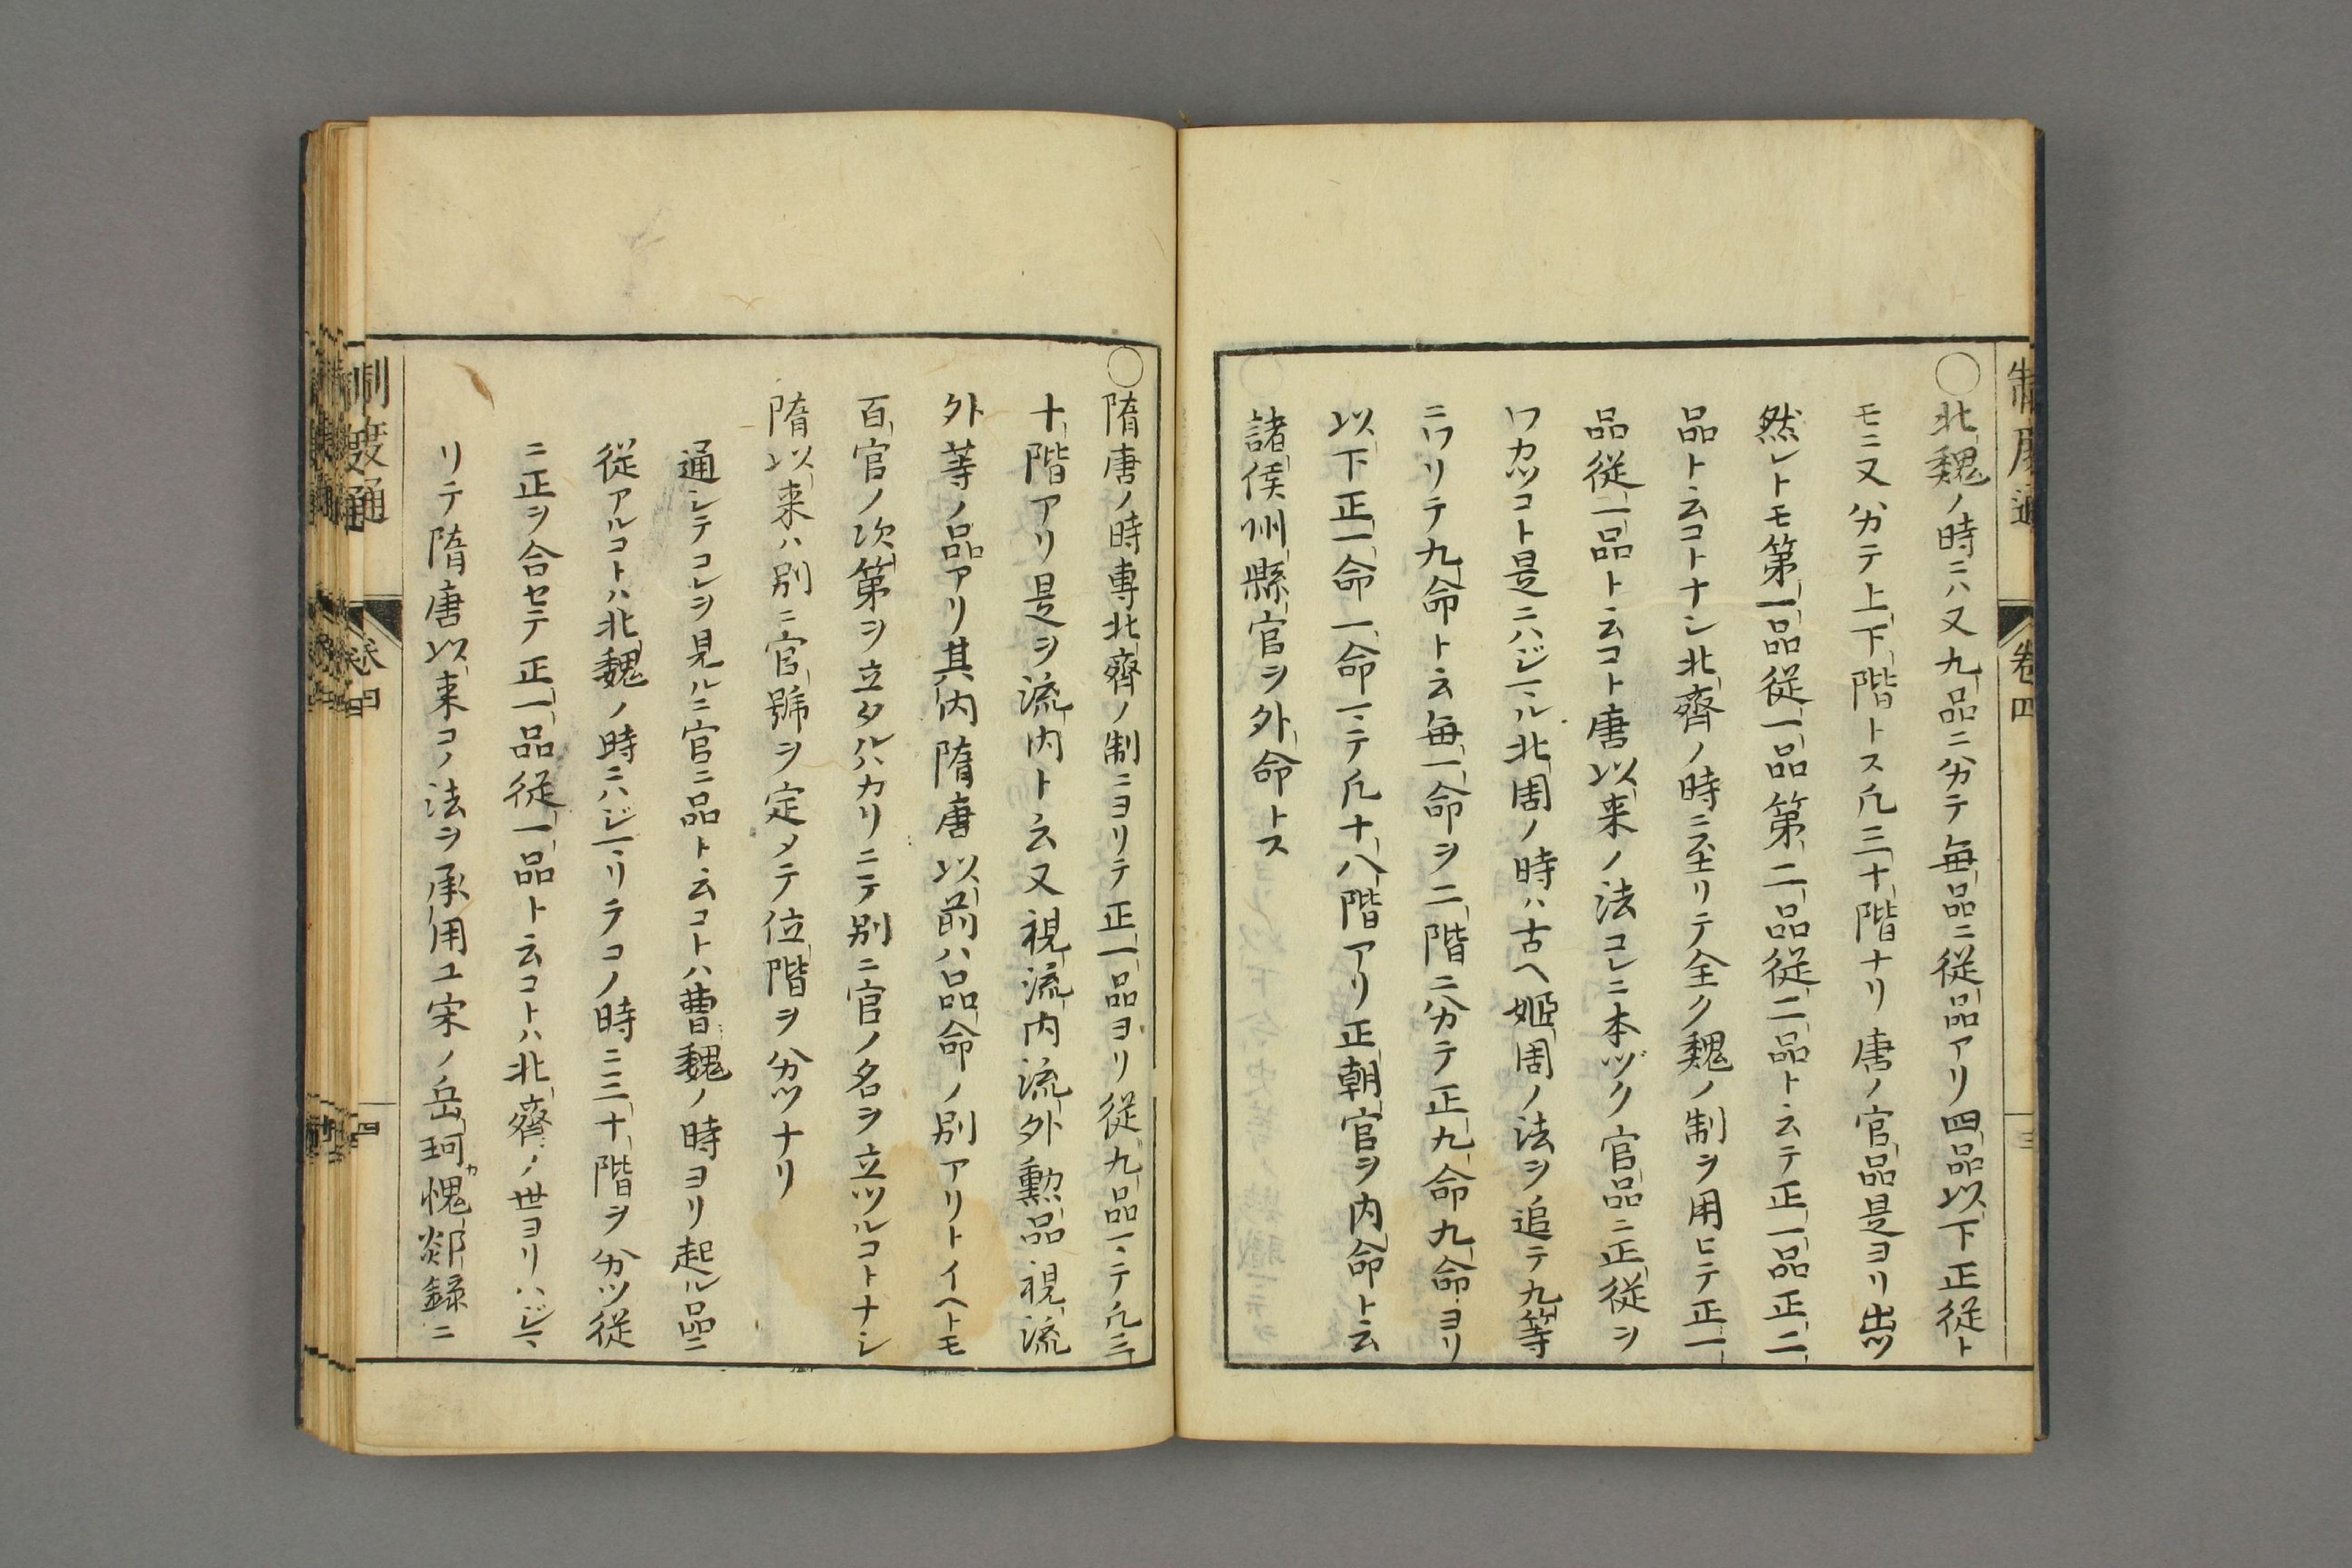 制度通 卷四 三
〇北魏ノ時ニハ又九品ニ分テ毎品ニ従品アリ四品以下正従ト
モニ又分テ上下階トス凡三十階ナリ唐ノ官品是ヨリ出ツ
然レトモ第一品従一品第二品従二品ト云テ正一品正二
品ト云コトナシ北齊ノ時ニ至リテ全ク魏ノ制ヲ用ヒテ正一
品従一品ト云コト唐以来ノ法コレニ本ヅク官品ニ正従ヲ
ワカツコト是ニハジマル北周ノ時ハ古ヘ姫周ノ法ヲ追テ九等
ニワリテ九命ト云毎一命ヲ二階ニ分テ正九命九命ヨリ
以下正一命一命マテ凡十八階アリ正朝官ヲ内命ト云
諸侯州縣官ヲ外命トス
〇隋唐ノ時専北齊ノ制ニヨリテ正一品ヨリ従九品マテ凡三
十階アリ是ヲ流内ト云又視流内流外勲品視流
外等ノ品アリ其内隋唐以前ハ品命ノ別アリトイヘトモ
百官ノ次第ヲ立タルハカリニテ別ニ官ノ名ヲ立ツルコトナシ
隋以来ハ別ニ官號ヲ定メテ位階ヲ分ツナリ
通シテコレヲ見ルニ官ニ品ト云コトハ曹魏ノ時ヨリ起ル品ニ
従アルコトハ北魏ノ時ニハジマリテコノ時ニ三十階ヲ分ツ従
ニ正ヲ合セテ正一品従一品ト云コトハ北齊ノ世ヨリハジマ
リテ隋唐以来コノ法ヲ承用ユ宋ノ岳珂カ愧郯録ニ
制度通 卷四 四